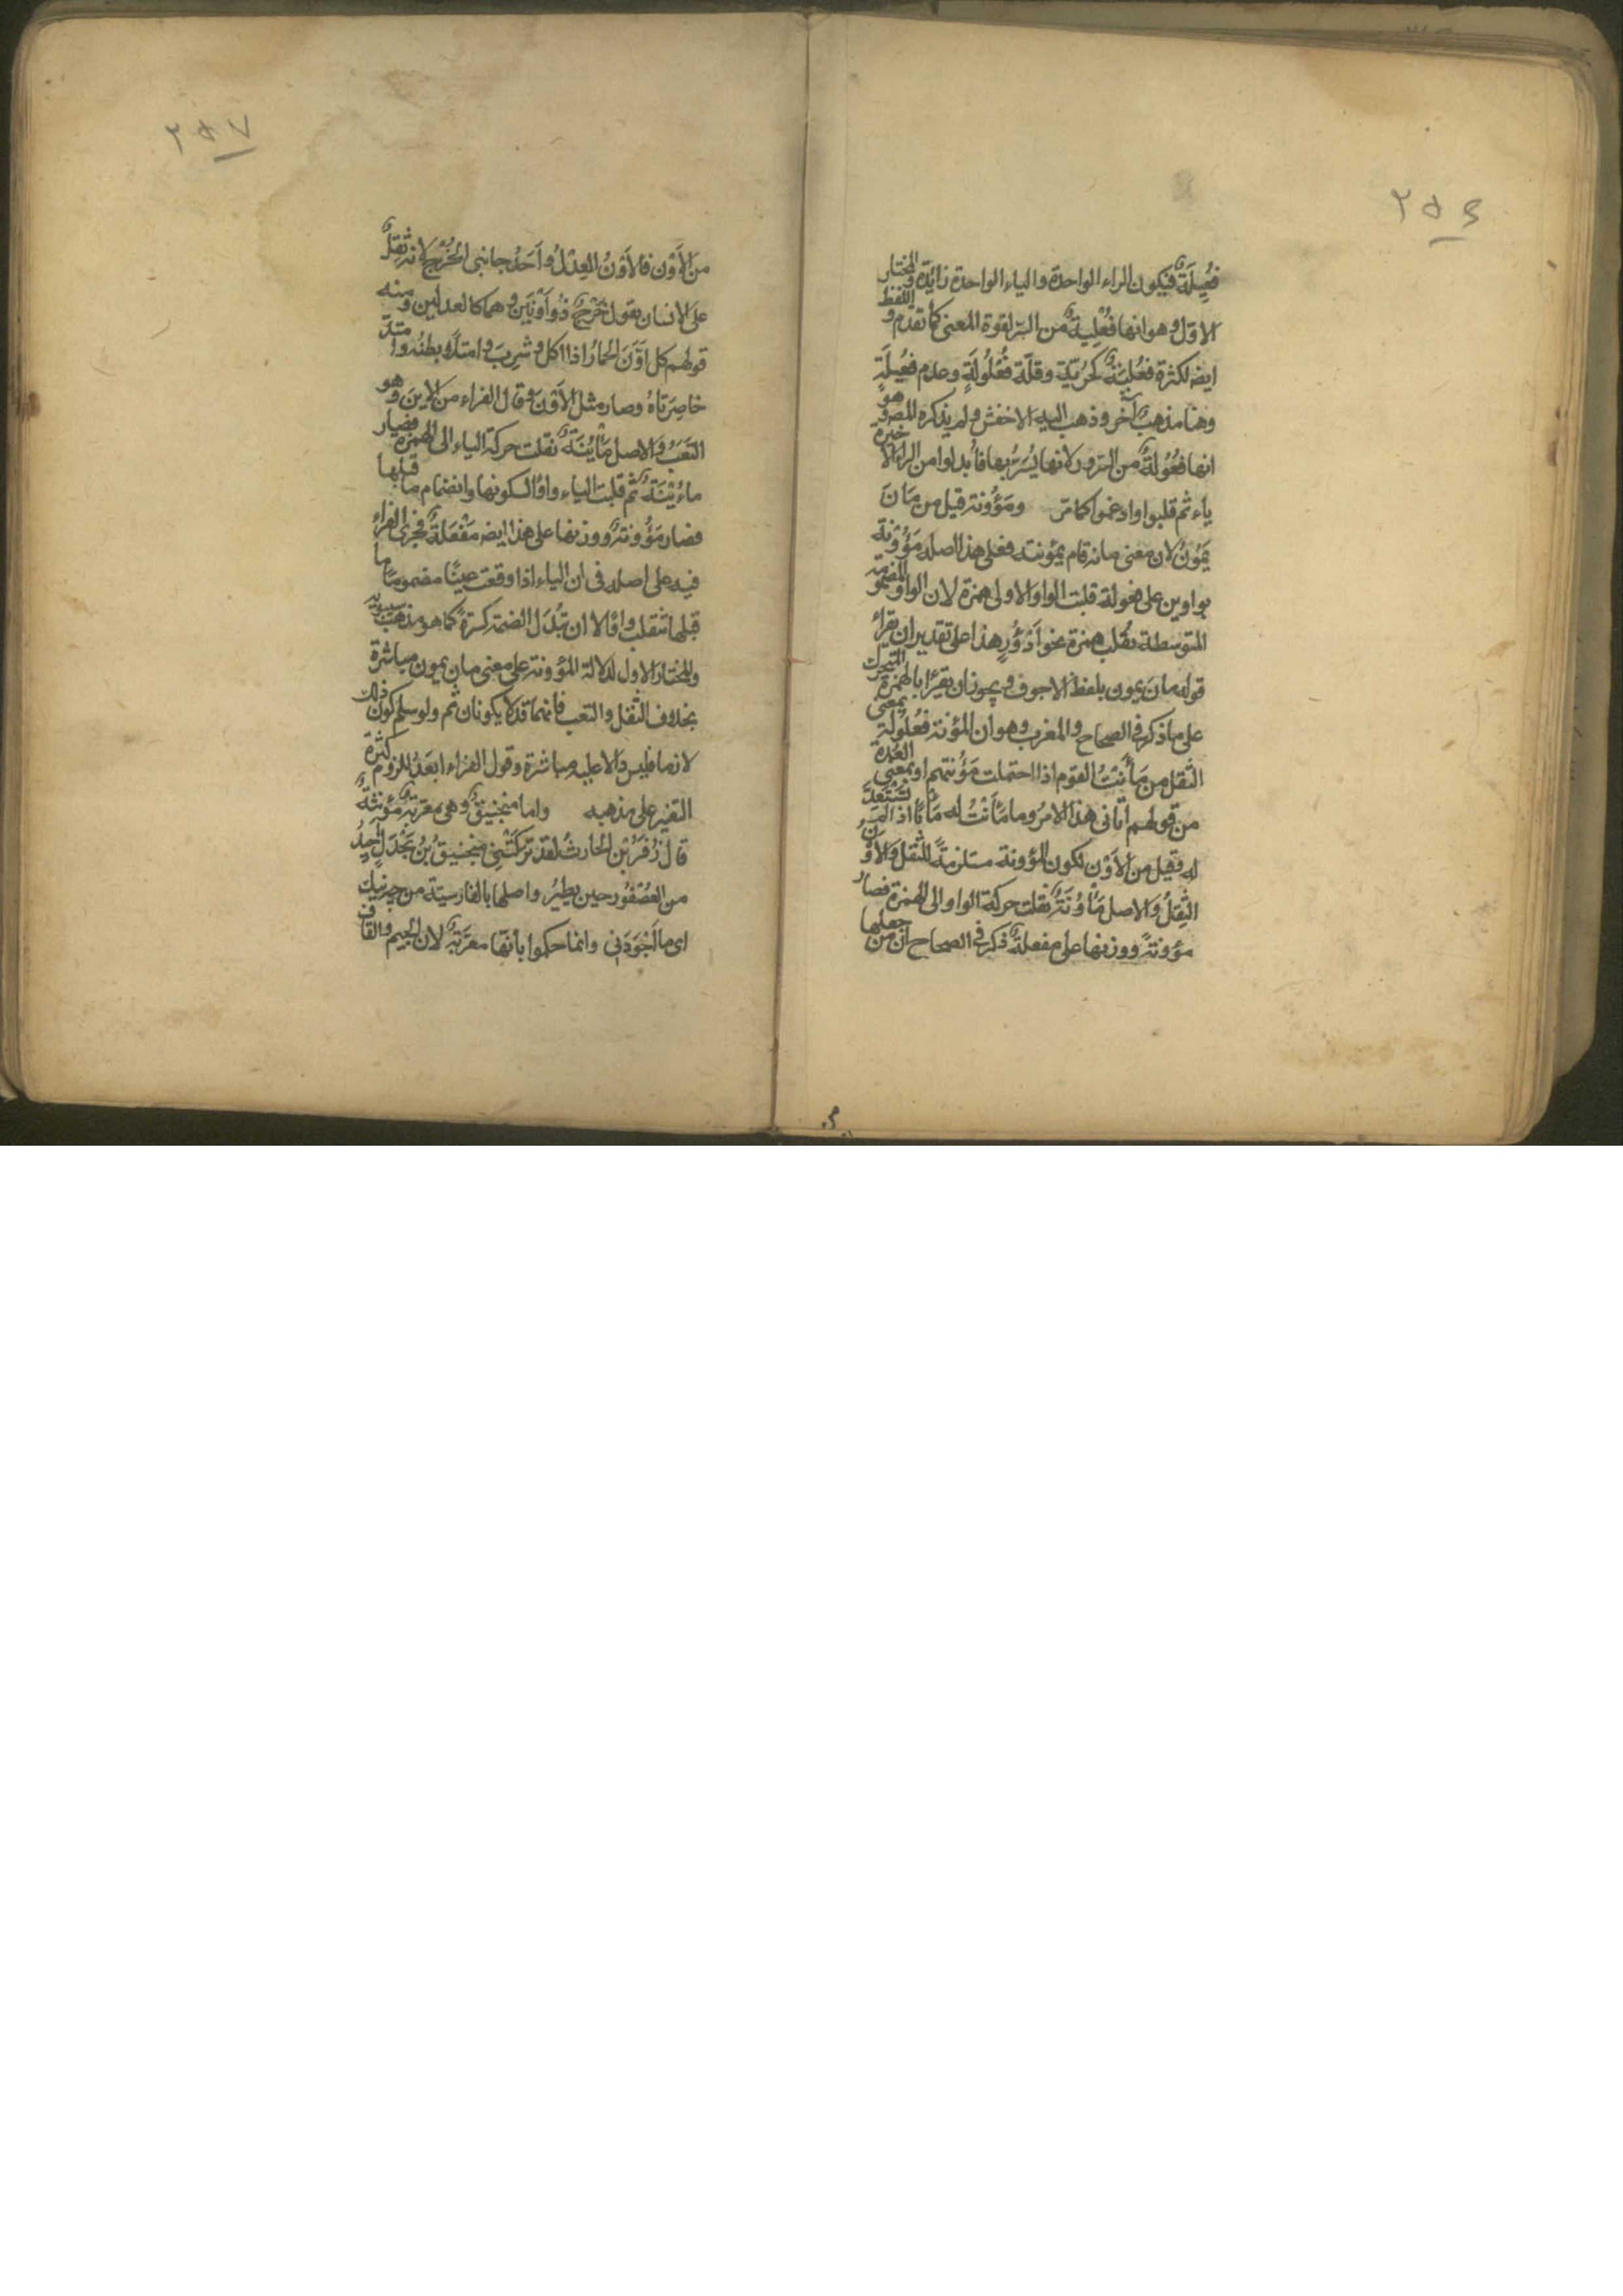 ٢٥٦
فُعِيلَةٌ فيكون الراء الواحدة والياء الواحدة زائدة والمختار
الاوّل وهو انها فُعْلِيةٌ من السّر لقوة المعنى كما تقدم واللفظ
ايضا لكثرة فُعْلِيَّةٌ كحُرّيّة وقلّة فُعْلُولَةٍ وعدم فعِيلَةٍ
وهنا مذهبٌ آخر وذهب اليه الاخفش ولم يذكره المصـ وهو
انها فعُّولةٌ من السّرور لانها يُسَرُّ بها فأبدلوا من الراء الاخيرة
ياء ثم قلبوا وادغموا كما مرّ ومَؤُونة قيل من مَانَ
يَمُونُ لان معنى مانه قام بمؤنته فعلى هذا اصله مَوُوْنة
بواوين على فعولة قلبت الواو الاولى همزة لان الواو المضمومة
المتوسطة تقلب همزة نحو اَدْؤُرٍ هذا على تقدير ان يقراء
قوله مان يمون بلفظ الاجوف ويجوز ان يقرأ بالهمزة
على ما ذكر فى الصحاح والمغرب وهو ان المؤنة فعُولة بمعنى
الثقل من مَأَنْتُ القوم اذا احتملت مَؤُنتهم او بمعنى العُدة
من قولهم اتانى هذا الامرُ وما مَأَنْتُ له مَأْنًا اذا لم تستعدّ
له وقيل من الاَوْن لكون المؤونة مستلزمةً للثقل والاَوْنُ
الثِقلُ والاصل مَأْوُنَةٌ نقلت حركة الواو الى الهمزة فصار
مؤونةً ووزنها على مفعلةٌ ذكر فى الصحاح ان من جعلها
٢٥٧
من الاَوْن فالاَوْنُ العِدْلُ واَحَدُ جانبى الخُرْجِ لانه ثِقلٌ
على الانسان يقول خُرْجٌ ذُو اَوْنَيْنِ وهما كالعدلين ومنه
قولهم كل اَوَّنَ الحمارُ اذا اكل وشرِبَ وامتلأ بطنُه وامتدّ
خاصِرَتاهُ وصار مثل الاَوْنَ وقال الفراء من الاينَ وهو
التعَبُ والاصل مَأْيُنَةٌ نقلت حركة الياء الى الهمزة فصار
مَاءُيْنَةٌ ثم قلبت الياء واوًا لسكونها وانضمام ما قبلها
فصار مَؤُونةٌ ووزنها على هذا ايضـ مَفْعلَةٌ فجرى الفراء
فيه على اصله فى ان الياء اذا وقعت عينًا مضمومًا ما
قبلها تنقلب واوًا لا ان تُبدَل الضمة كسرةً كما هو مذهب سيبويه
والمختار الاول لدلالة المؤونة على معنى مان يمون مباشرة
بخلاف الثقل والتعب فانهما قد لا يكونان ثم ولو سلم كون ذلك
لازما فليس دالا عليه مباشرة وقول الفراء ابعَدُ للزوم كثرة
التغير على مذهبه واما منجنيقٌ وهى معرّبةٌ مؤنثةٌ
قال زُفَرُ بْن الحارث لقد تركَتْنِى منجنيقُ بْنُ بَحْدَلٍ احِيدُ
من العُصْفُورِ حين يطيرُ واصلها بالفارسيّة من جه نيك
اى ما اَجْوَدَنِى وانما حكموا بأنها معرّبةٌ لان الجيم والقاف